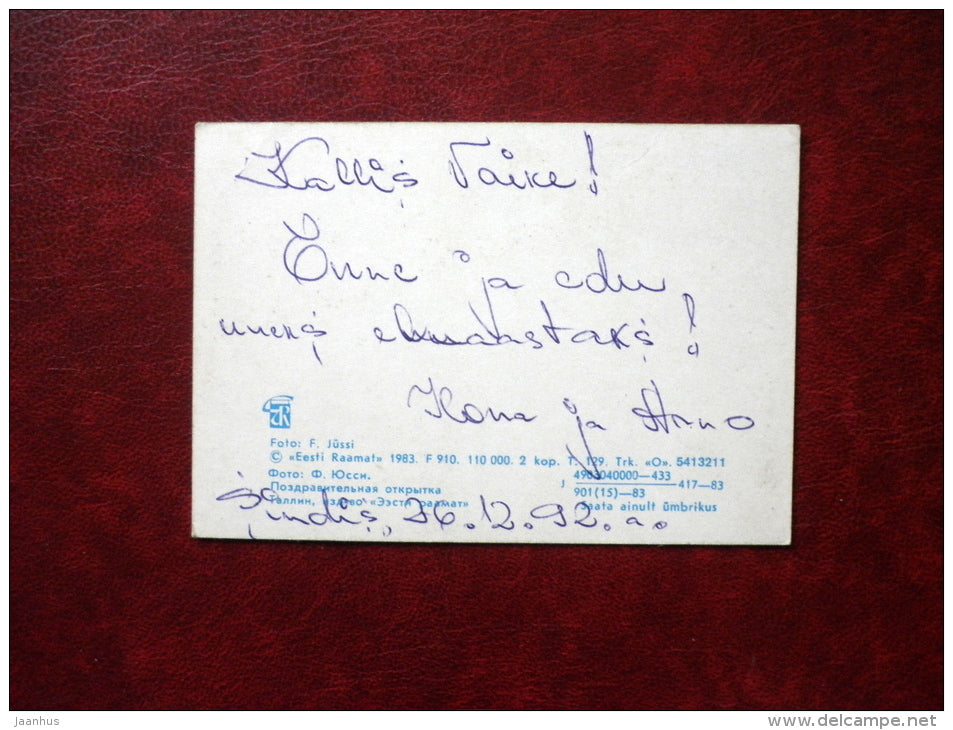 Kallis Vaike!
Õnne ja edu
uueks eluaastaks!
Ilona ja Arno
Foto: F. Jüssi
© «Eesti Raamat» 1983. F 910. 110 000. 2 kop. T. 129. Trk. «O». 5413211
Фото: Ф. Юсси.
Поздравительная открытка
Таллин, изд-во «Ээсти раамат»
J 4903040000—433 417—83
901(15)—83
Saata ainult ümbrikus
Sindis, 26.12.92.a.
Jaanhus
www.delcampe.net